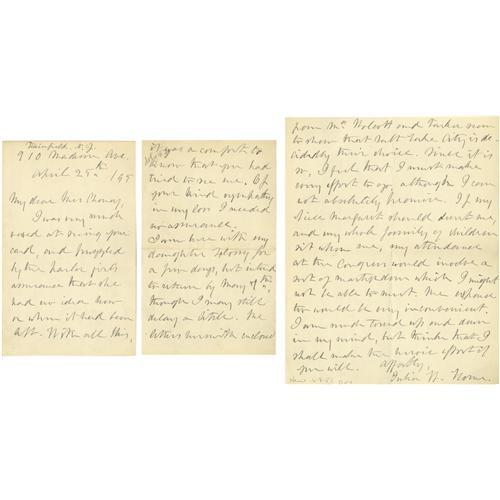 Plainfield, N.J.
910 Madison Ave.
April 25th 195
My dear Mrs Cheney,
I was very much
vexed at seeing your
card, and puzzled
by the parlor girl's
assurance that she
had no idea how
or when it had been
left. With all this,
it was a comfort to
know that you had
tried to see me. Of
your kind sympathy
in my loss I needed
no assurance.
I am here with my
daughter
for a few days, but intend
to return by May 1st,
though I may still
delay a little. The
letters herewith enclosed
from Mrs Wolcott and Parker seem
to show that Salt Lake City is de-
cidedly their choice. Since it is
so, I feel that I must make
every effort to go, although I can
not absolutely promise. If my
niece Margaret should desert me,
and my whole family of children
sit upon me, my attendance
at the Congress would involve a
sort of martyrdom which I might
not be able to meet. The expense
too would be very inconvenient.
I am much tossed up and down
in my mind, but think that I
shall make the heroic effort if
you will.
Affectly,
Julia W. Howe.